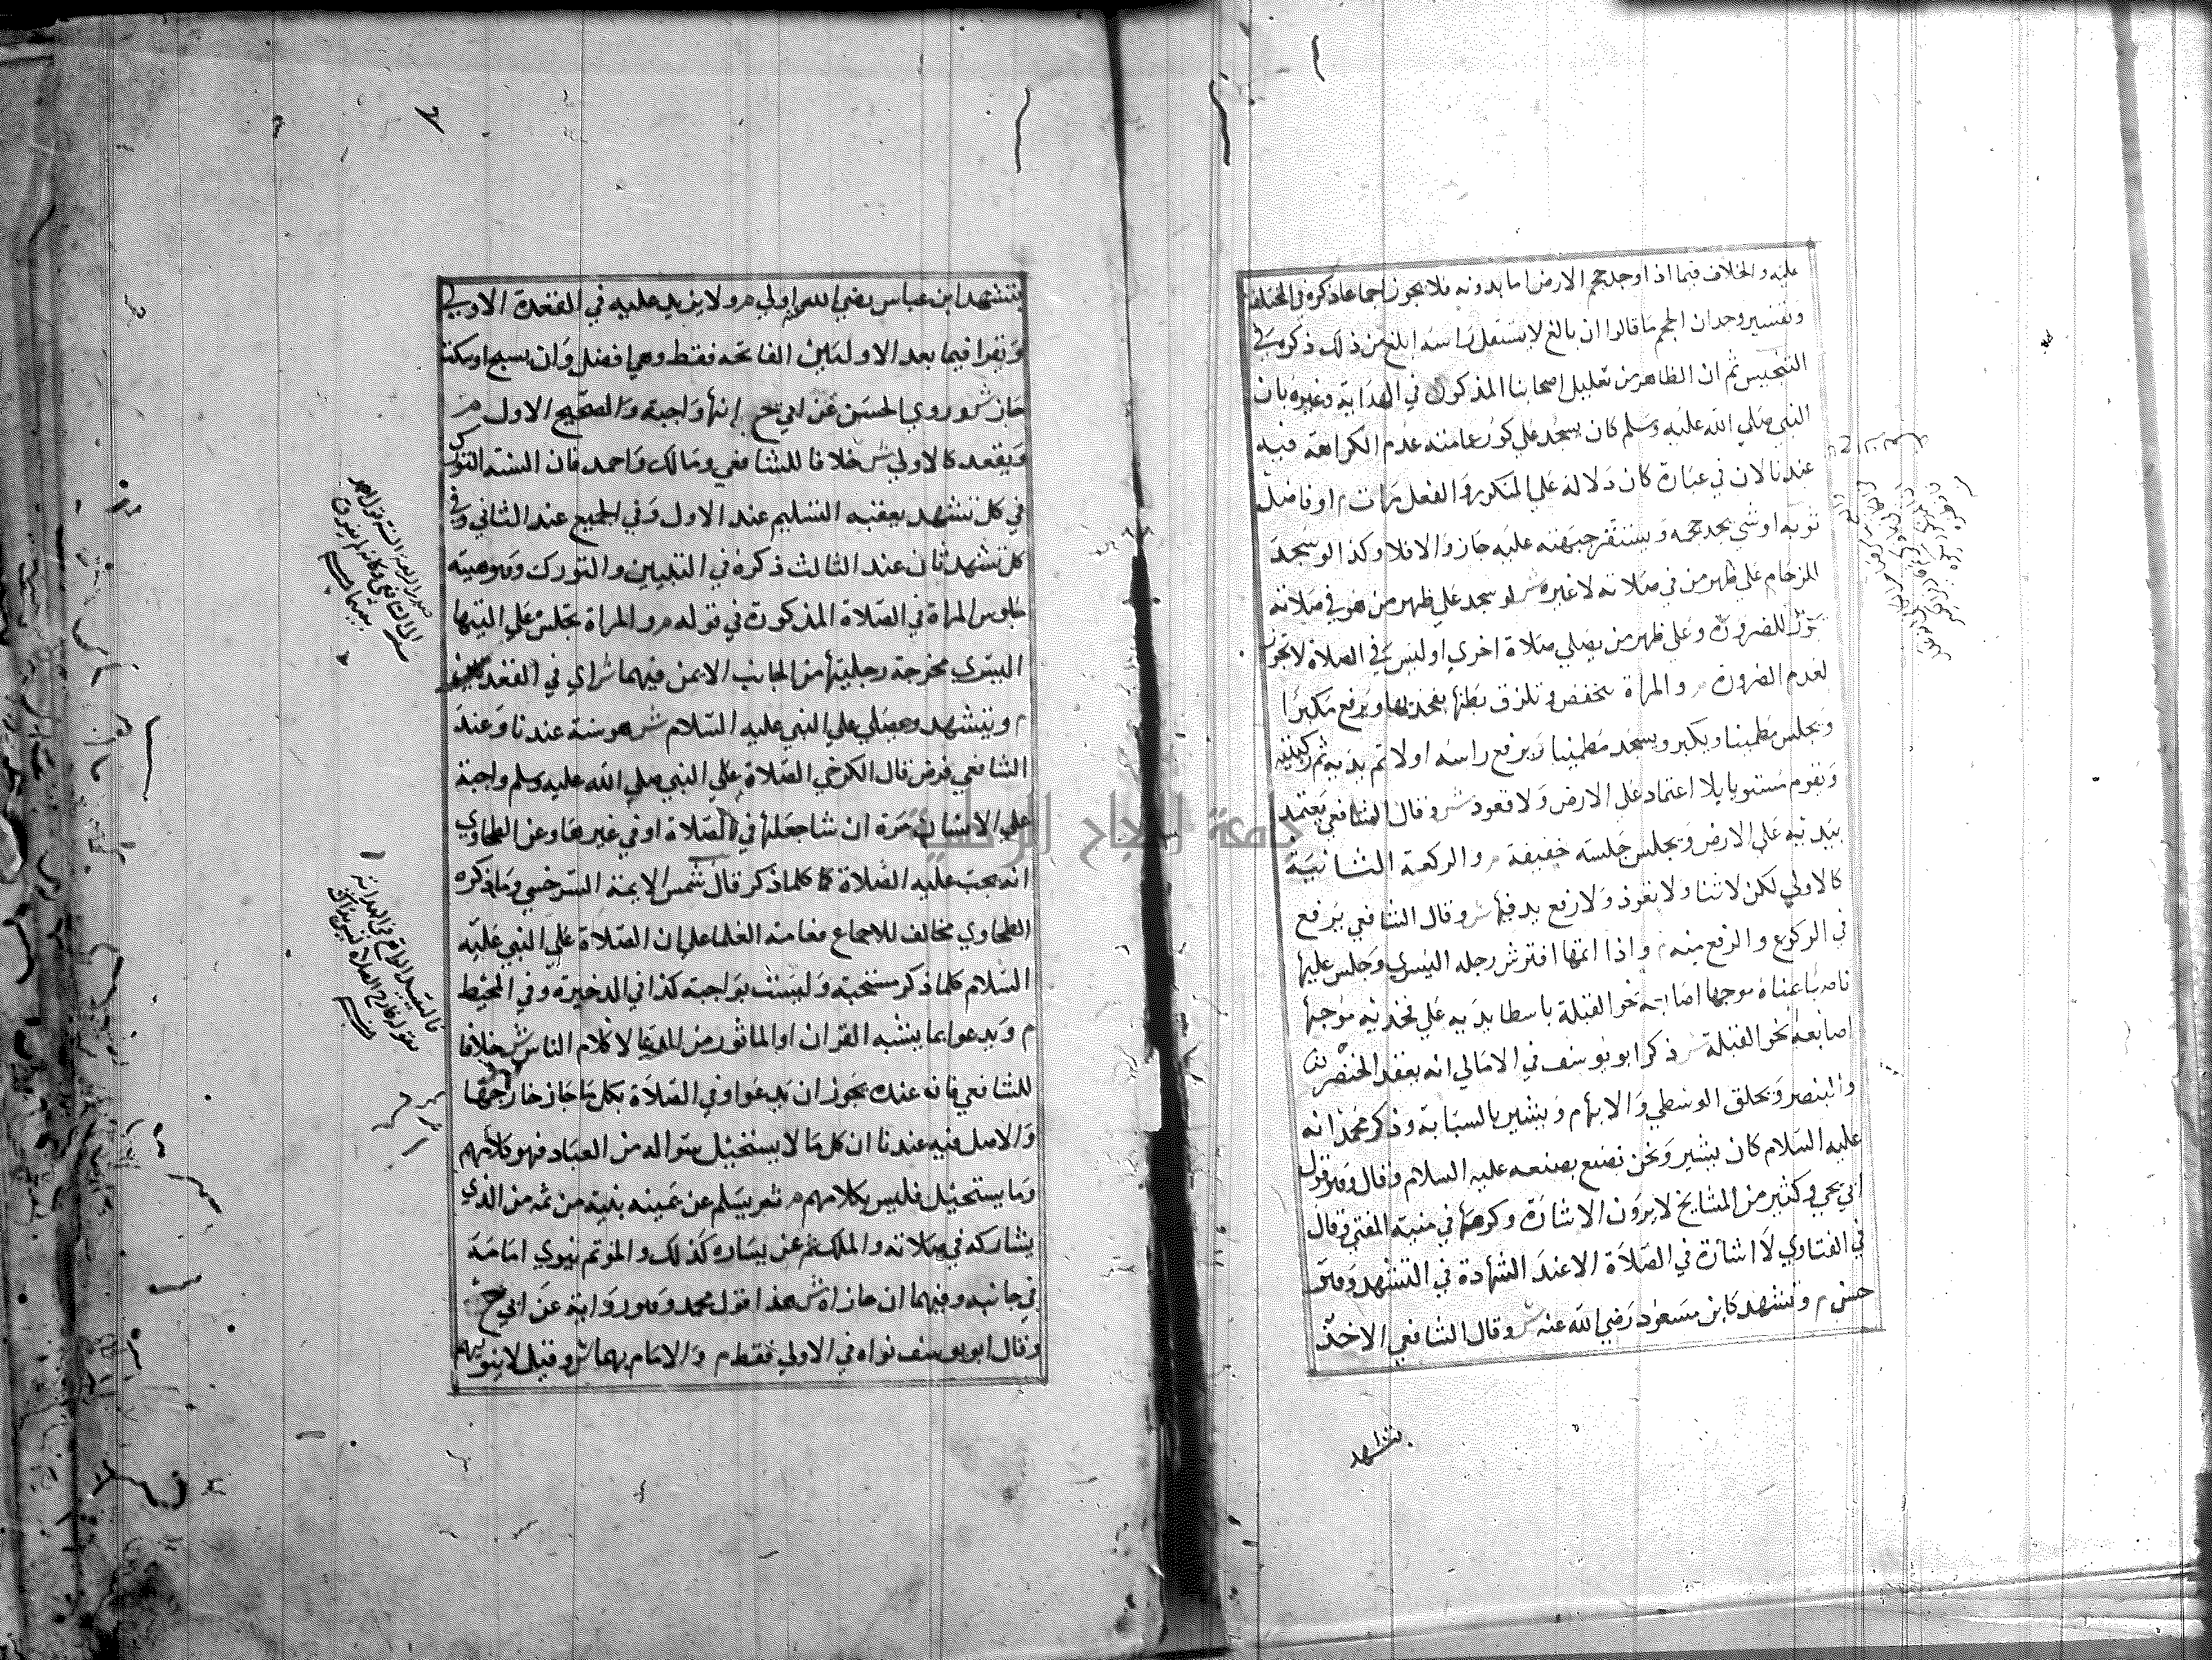 عليه والخلاف فيما اذا وجد حجم الارض اما بدونه فلا يجوز اجماعا ذكره في المختلف
وتفسير وجدان الحجم ما قالوا ان بالغ لا يستفل راسه ابلغ من ذلك ذكره في
التجنيس ثم ان الظاهر من تعليل اصحابنا المذكور في الهداية وغيره بان
النبي صلي الله عليه وسلم كان يسجد علي كور عمامته عدم الكراهة فيه
عندنا لان في عبارة كان دلالة علي المتكرر والفعل مرات م او فاضل
ثوبه او شي يجد حجمه ويستقر جبهته عليه جاز والا فلا وكذا لو سجد
المزحام علي ظهر من في صلاته لا غيره ش لو سجد علي ظهر من هو في صلاته
يجوز للضرورة وعلي ظهر من يصلي صلاة اخري او ليس في الصلاة لا يجوز
لعدم الضرورة م والمراة تنخفض وتلزق بطنها بفخذيها ويرفع مكبرا
ويجلس مطمينا ويكبر ويسجد مطمينا ويرفع راسه اولا ثم يديه ثم ركبتيه
ويقوم مستويا بلا اعتماد علي الارض ولا قعود ش وقال الشافعي يعتمد
بيديه علي الارض ويجلس جلسة خفيفة م والركعة الثانية
كالاولي لكن لا ثنا ولا تعوذ ولا رفع يد فيها ش وقال الشافعي يرفع
في الركوع والرفع منه م واذا اتمها افترش رجله اليسري وجلس عليها
ناصبا يمناه موجها اصابعه نحو القبلة باسطا يديه علي فخذيه موجها
اصابعه نحو القبلة ش ذكر ابو يوسف في الامالي انه يعقد الخنصر
والبنصر ويحلق الوسطي والابهام ويشير بالسبابة وذكر محمد انه
عليه السلام كان يشير ونحن نصنع بصنعه عليه السلام وقال وهو قول
ابي ح وكثير من المشايخ لا يرون الاشارة وكرهها في منية المفتي وقال
في الفتاوي لا اشارة في الصلاة الا عند الشهادة في التشهد وهو
حسن م وتشهد كابن مسعود رضي الله عنه ش وقال الشافعي الاخذ
بتشهد
بتشهد ابن عباس رضي الله اولي م ولا يزيد عليه في القعدة الاولي
ويقرا فيما بعد الاوليين الفاتحة فقط وهي افضل وان سبح او سكت
جاز ش وروي الحسن عن ابي ح انها واجبة والصحيح الاول م
ويقعد كالاولي ش خلافا للشافعي ومالك واحمد فان السنة التورك
في كل تشهد يعقبه التسليم عند الاول وفي الجميع عند الثاني وفي
كل تشهد ثان عند الثالث ذكره في التبيين والتورك وهو صيته
جلوس المراة في الصلاة المذكورة في قوله م والمراة تجلس علي اليتها
اليسري مخرجة رجليها من الجانب الايمن فيهما ش اي في القعدتين
م ويتشهد ويصلي علي النبي عليه السلام ش هو سنة عندنا وعند
الشافعي فرض قال الكرخي الصلاة علي النبي صلي الله عليه وسلم واجبة
علي الانسان مرة ان شا جعلها في الصلاة او في غيرها وعن الطحاوي
انه يجب عليه الصلاة كلما ذكر قال شمس الايمة السرخسي وما ذكره
الطحاوي مخالف للاجماع فعامة العلما علي ان الصلاة علي النبي عليه
السلام كلما ذكر مستحبة وليست بواجبة كذا في الذخيرة وفي المحيط
م ويدعو بما يشبه القران او الماثور من الدعا لا كلام الناس ش خلافا
للشافعي فانه عنده يجوز ان يدعو في الصلاة بكل ما جاز خارجها
والاصل فيه عندنا ان كل ما لا يستحيل سواله من العباد فهو كلامهم
وما يستحيل فليس بكلامهم م ثم يسلم عن يمينه بنية من ثمه من الذي
يشاركه في صلاته والملك ثم عن يساره كذلك والموتم ينوي امامه
في جانبه وفيهما ان حاذاه ش هذا قول محمد وهو رواية عن ابي ح
وقال ابو يوسف نواه في الاولي فقط م والامام بهما ش وقيل لا ينويهم
جامعة النجاح الوطنية